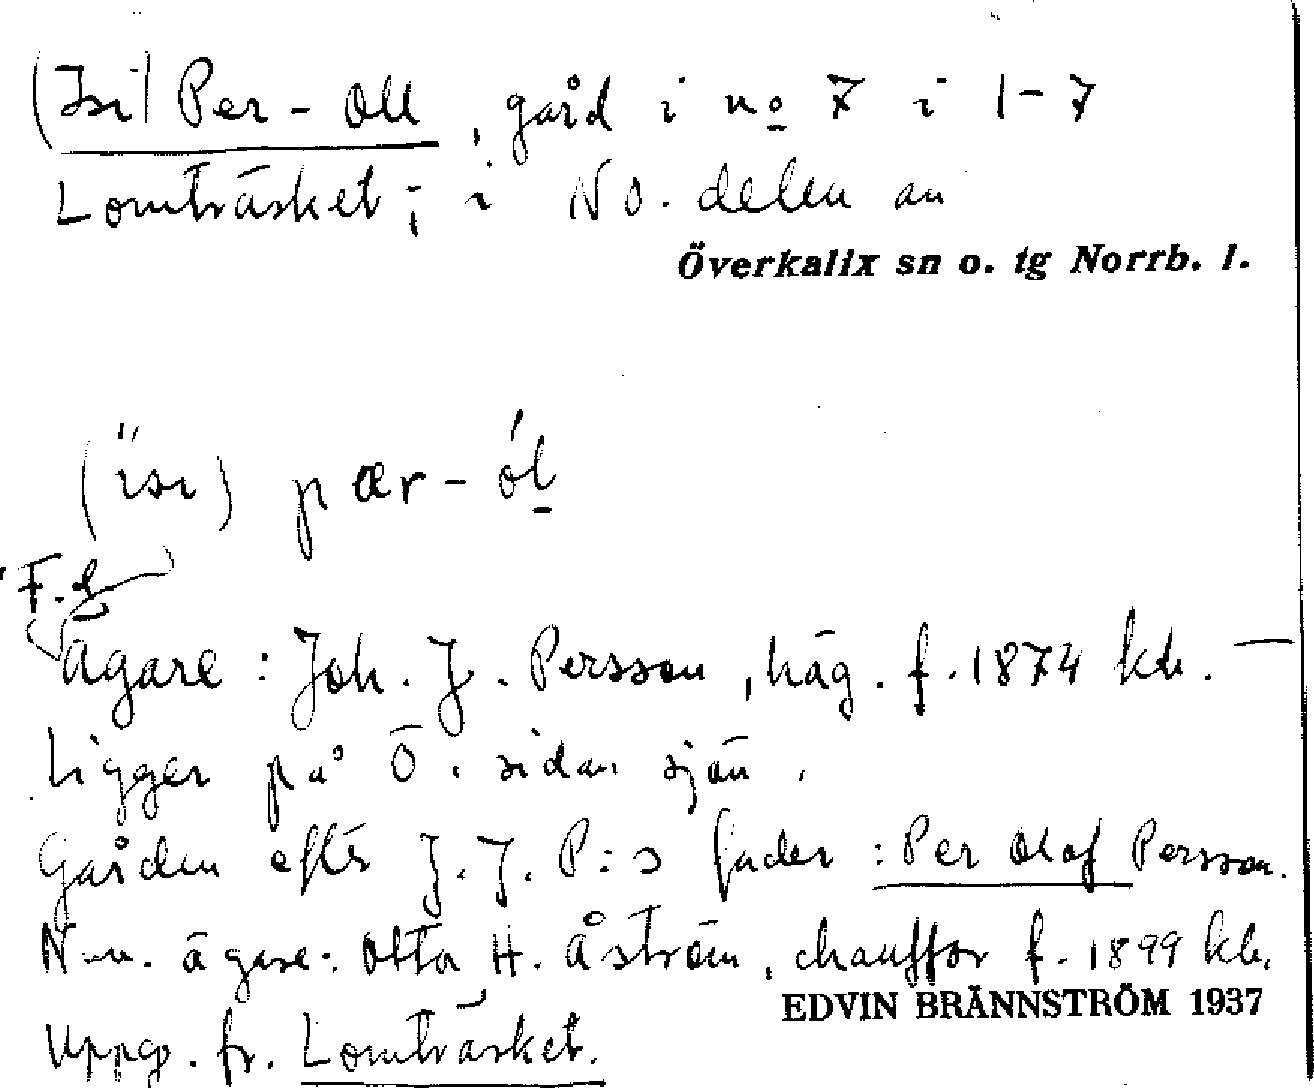 (Isi) Per-Oll, gård i no 7 i 1-7
Lomträsket; i NO. delen av
Överkalix sn o. tg Norrb. l.
(ïsi) pær-ól
F.d.
ägare: Joh. J. Persson, häg. f. 1874 kb. —
Ligger på Ö. sidan sjön.
Gården eftr J. J. P:s fader: Per Olof Persson.
N.v. ägare: Otto H. Åström, chaufför f. 1899 kb.
EDVIN BRÄNNSTRÖM 1937
Uppg. fr. Lomträsket.